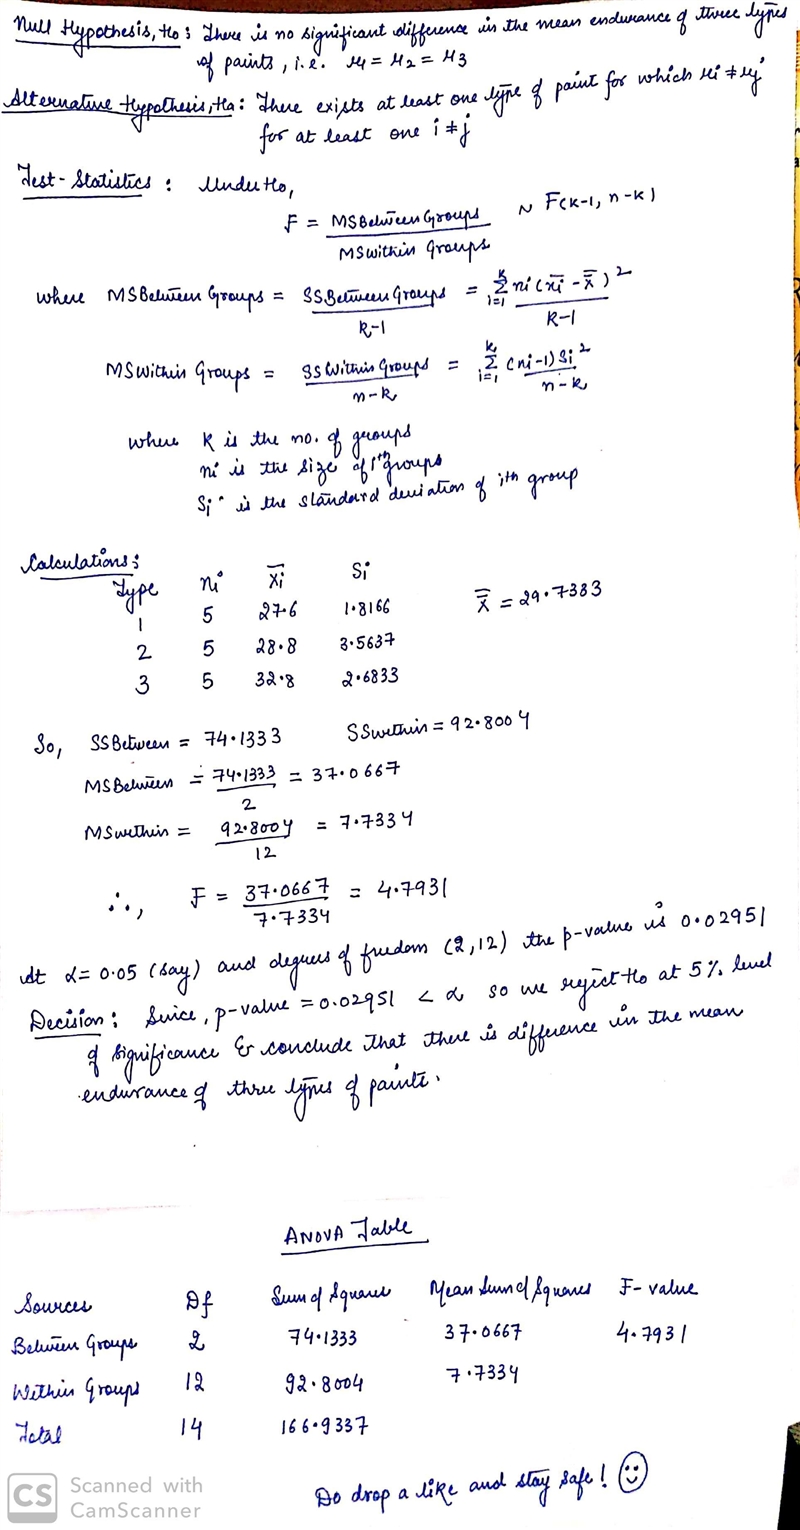 Null Hypothesis, Ho : There is no significant difference in the mean endurance of three types
of paints, i.e. μ1 = μ2 = μ3
Alternative Hypothesis, Ha : There exists at least one type of paint for which μi ≠ μj
for at least one i ≠ j
Test-Statistics : Under Ho,
F = MSBetween Groups / MSwithin Groups ~ F(k-1, n-k)
where MSBetween Groups = SSBetween Groups / k-1 = Σ_{i=1}^{k} ni (x̄i - x̿)² / k-1
MSwithin Groups = SSwithin Groups / n-k = Σ_{i=1}^{k} (ni-1) Si² / n-k
where k is the no. of groups
ni is the size of ith groups
Si is the standard deviation of ith group
Calculations :
Type ni x̄i Si
1 5 27.6 1.8166 x̿ = 29.7333
2 5 28.8 3.5637
3 5 32.8 2.6833
So, SSBetween = 74.1333 SSwithin = 92.8004
MSBetween = 74.1333 / 2 = 37.0667
MSwithin = 92.8004 / 12 = 7.7334
∴, F = 37.0667 / 7.7334 = 4.7931
At α = 0.05 (say) and degrees of freedom (2,12) the p-value is 0.02951
Decision : Since, p-value = 0.02951 < α so we reject Ho at 5% level
of significance & conclude that there is difference in the mean
endurance of three types of paints.
ANOVA Table
Sources Df Sum of Squares Mean Sum of Squares F-value
Between Groups 2 74.1333 37.0667 4.7931
Within Groups 12 92.8004 7.7334
Total 14 166.9337
Do drop a like and stay safe! ☺
CS Scanned with
CamScanner